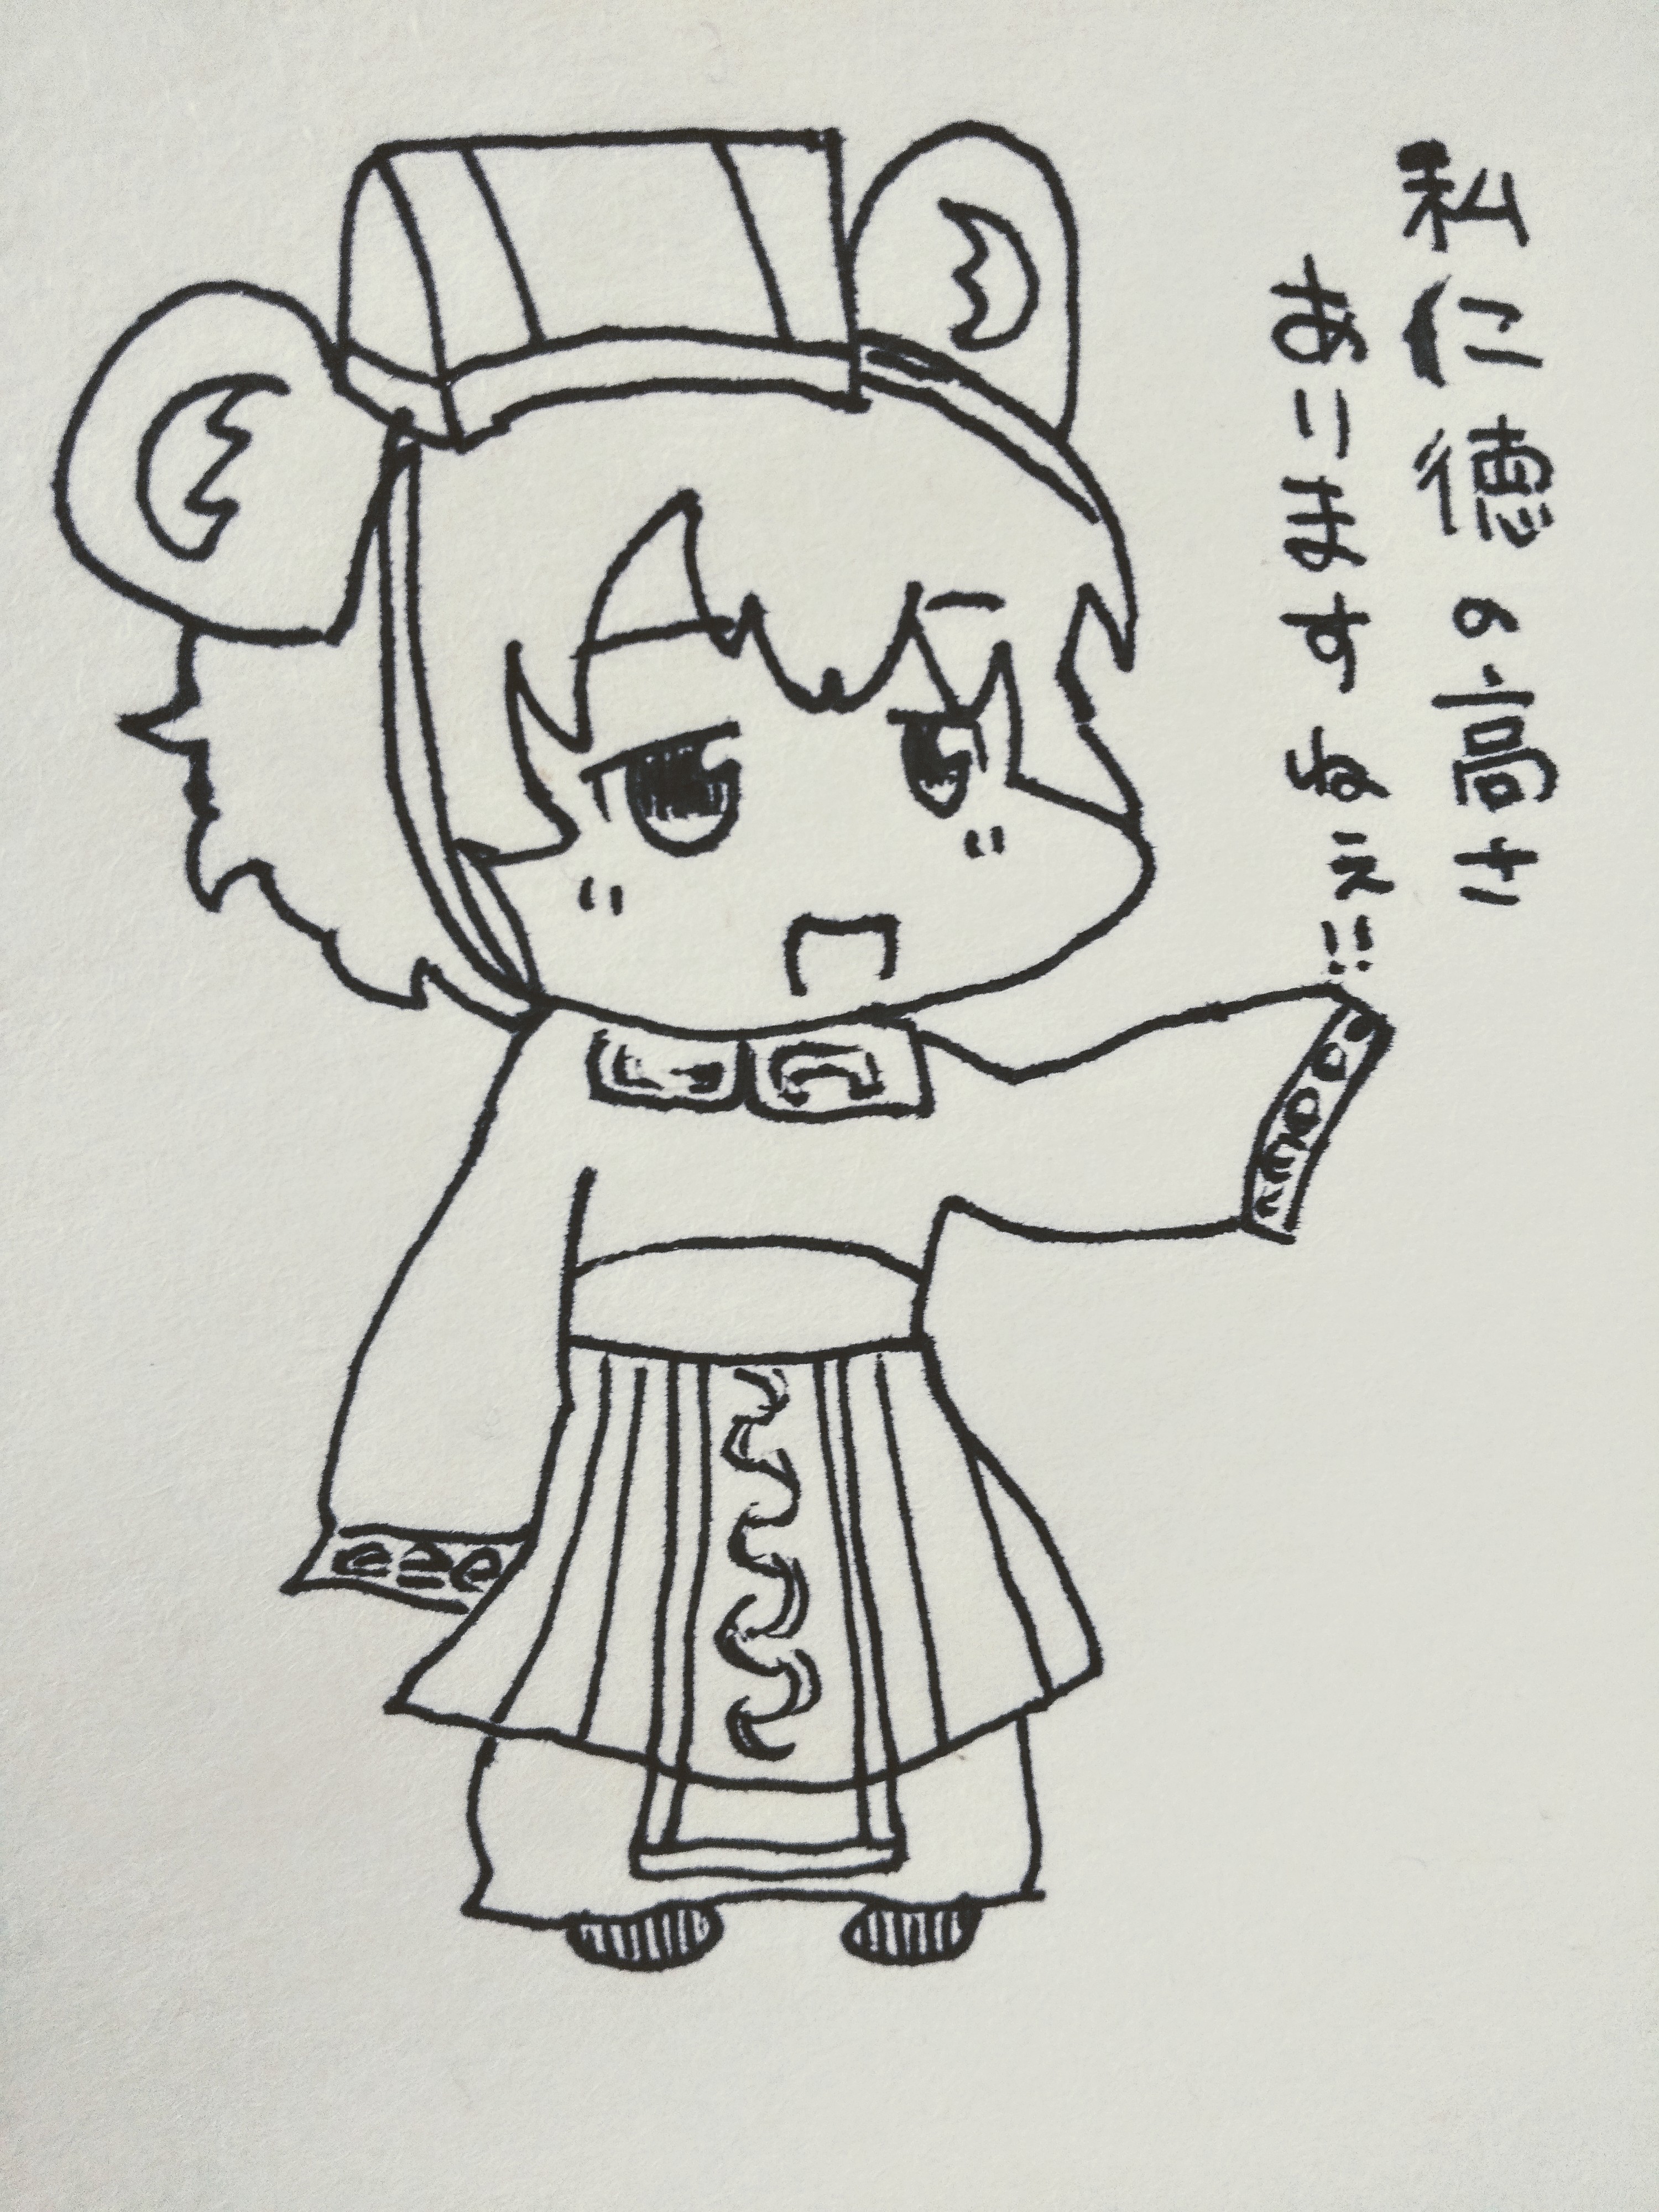 私に徳の高さ
ありますねえ!!